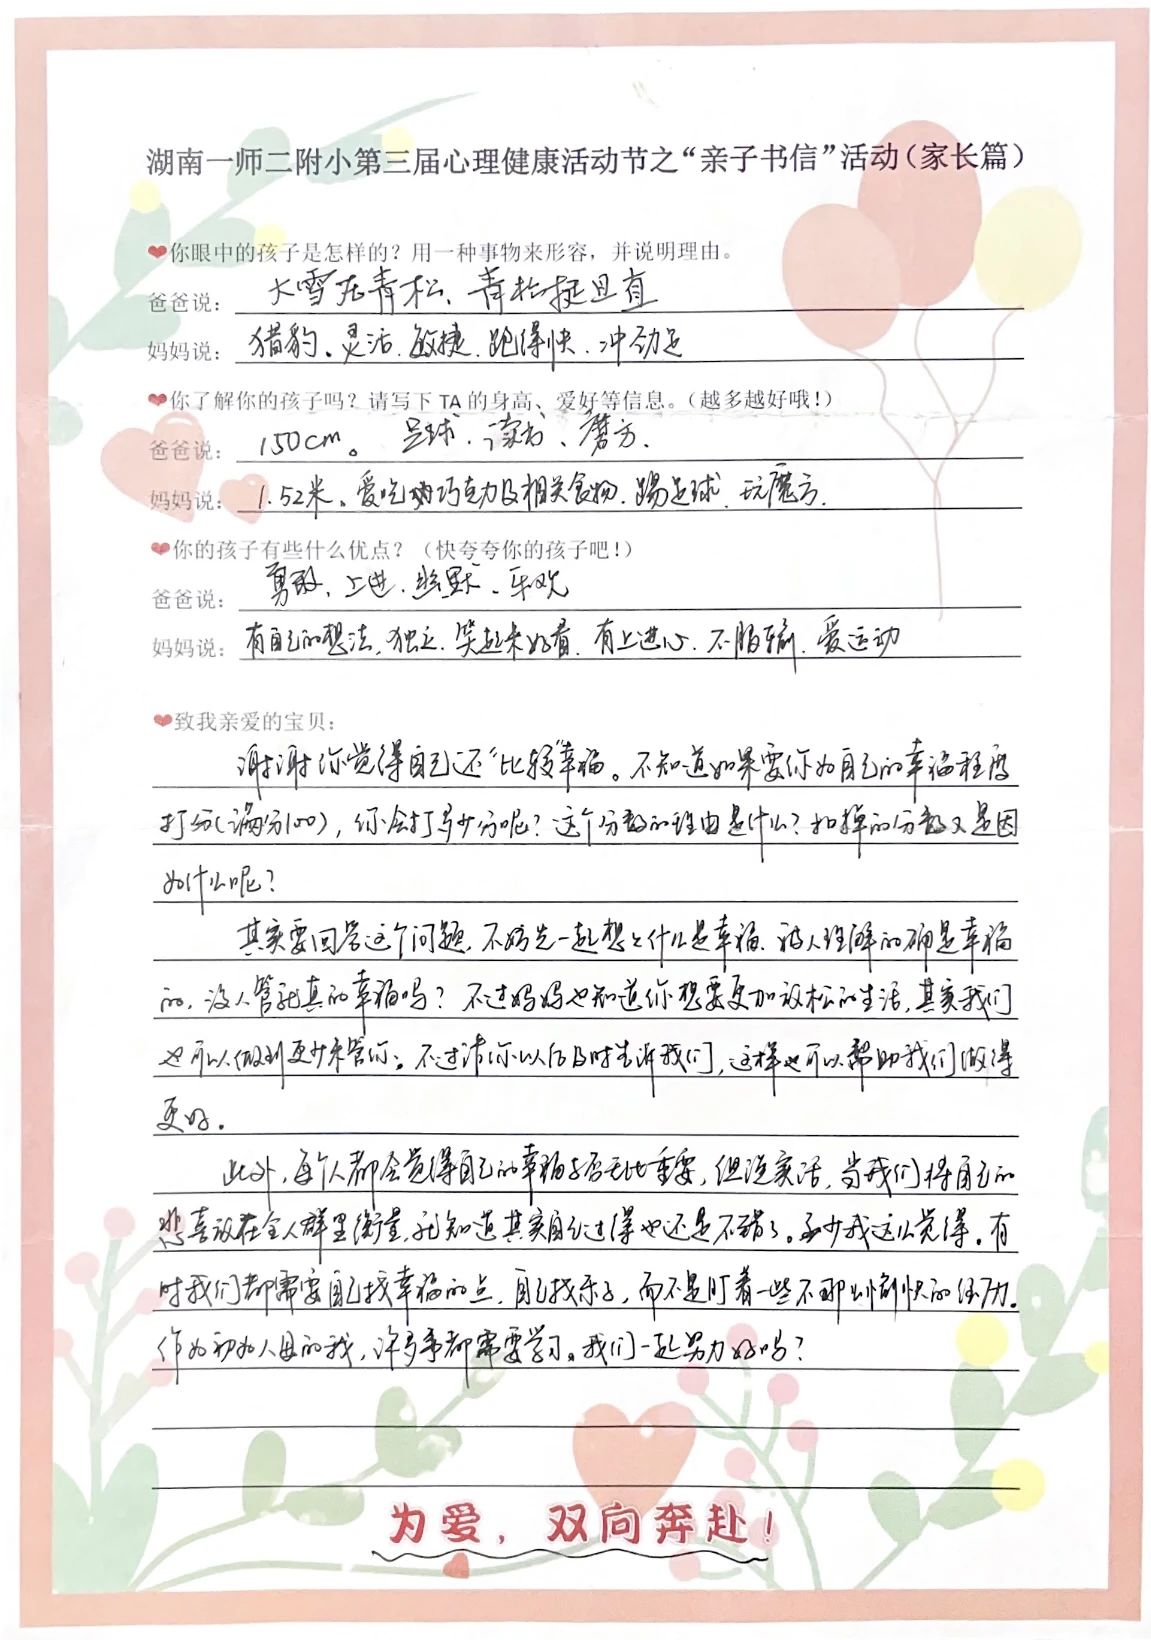 湖南一师二附小第三届心理健康活动节之“亲子书信”活动(家长篇)
❤你眼中的孩子是怎样的?用一种事物来形容,并说明理由。
爸爸说: 大雪压青松、青松挺且直
妈妈说: 猎豹。灵活、敏捷、跑得快、冲劲足
❤你了解你的孩子吗?请写下 TA 的身高、爱好等信息。(越多越好哦!)
爸爸说: 150cm。 足球、读书、魔方、
妈妈说: 1.52米。爱吃巧克力及相关食物、踢足球、玩魔方、
❤你的孩子有些什么优点?(快夸夸你的孩子吧!)
爸爸说: 勇敢、上进、幽默、乐观
妈妈说: 有自己的想法、独立、笑起来好看、有上进心、不服输、爱运动
❤致我亲爱的宝贝:
谢谢你觉得自己还“比较”幸福。不知道如果要你为自己的幸福程度
打分(满分100),你会打多少分呢?这个分数的理由是什么?扣掉的分数又是因
为什么呢?
其实要回答这个问题,不妨先一起想想什么是幸福、被人理解的确是幸福
的,没人管就真的幸福吗?不过妈妈也知道你想要更加放松的生活,其实我们
也可以做到更少来管你。不过请你以后及时告诉我们,这样也可以帮助我们做得
更好。
此外,每个人都会觉得自己的幸福与否无比重要,但说实话,当我们将自己的
悲喜放在全人群里衡量,就知道其实自己过得也还是不错了。至少我这么觉得。有
时我们都需要自己找幸福的点,自己找乐子,而不是盯着一些不那么愉快的经历。
作为初为人母的我,许多事都需要学习。我们一起努力好吗?
为爱,双向奔赴!